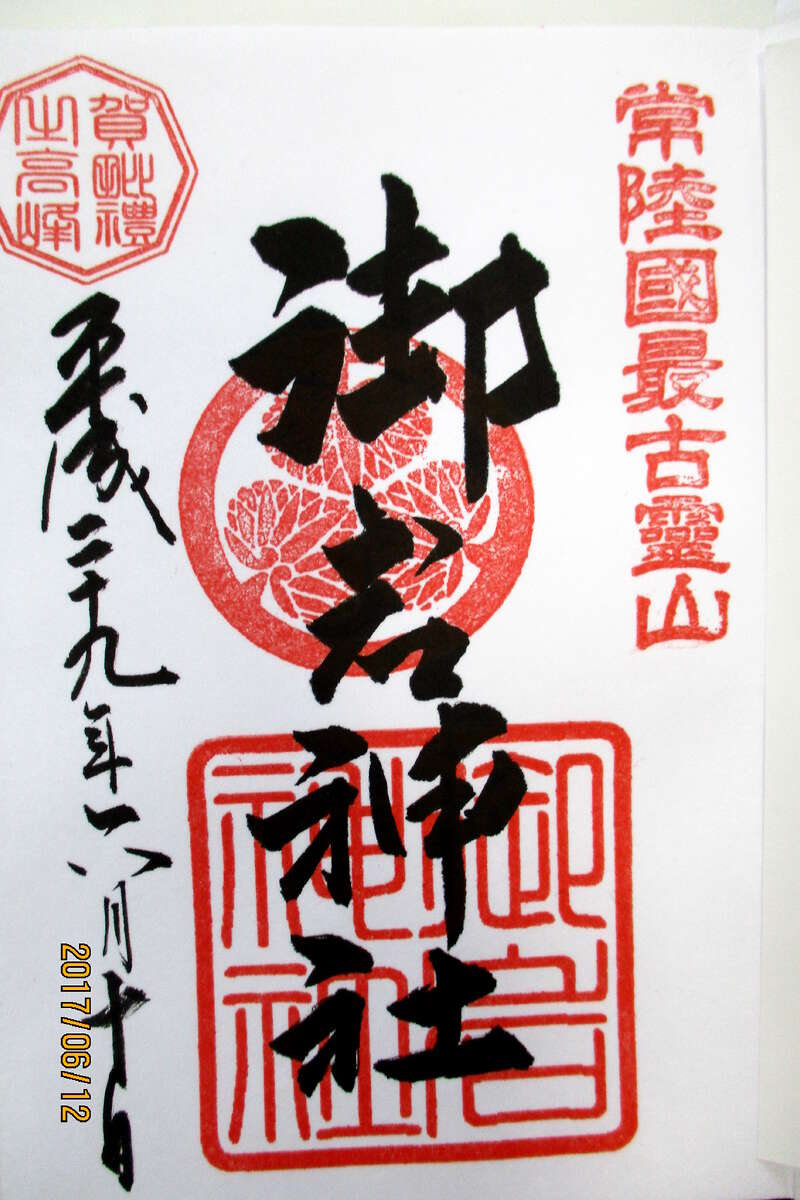 常陸國最古靈山
御岩神社
御岩
神社
賀毗禮
之高峰
平成二十九年六月十日
2017/06/12